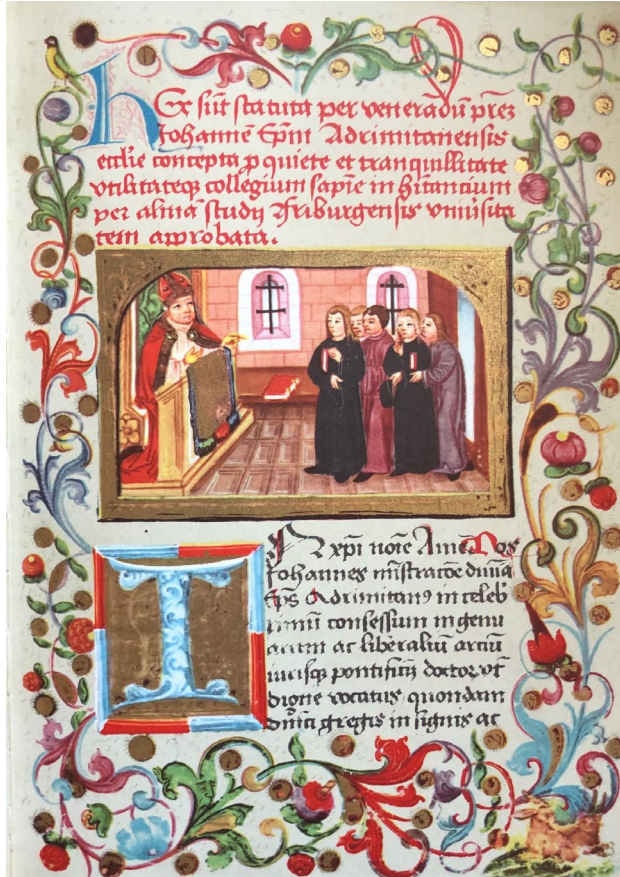 hEx sūt statuta per veneradū prēz
Johannē Ep̄m Adrimitanensis
eccl̄ie concepta p quiete et tranquillitate
vtilitateqꝫ collegium sapīe in hītancium
per almā studij Friburgensis vniu̓sita
tem approbata.
IN xp̄i noīe Amē Nos
Johannes mīstratōe diuīa
Ep̄s Adrimitanꝰ in celeb
rimū consessum ingenu
arum ac liberaliū arciū
iurisqꝫ pontificij doctor
dione vocatus quondam
dn̄ici gregis in signis ac